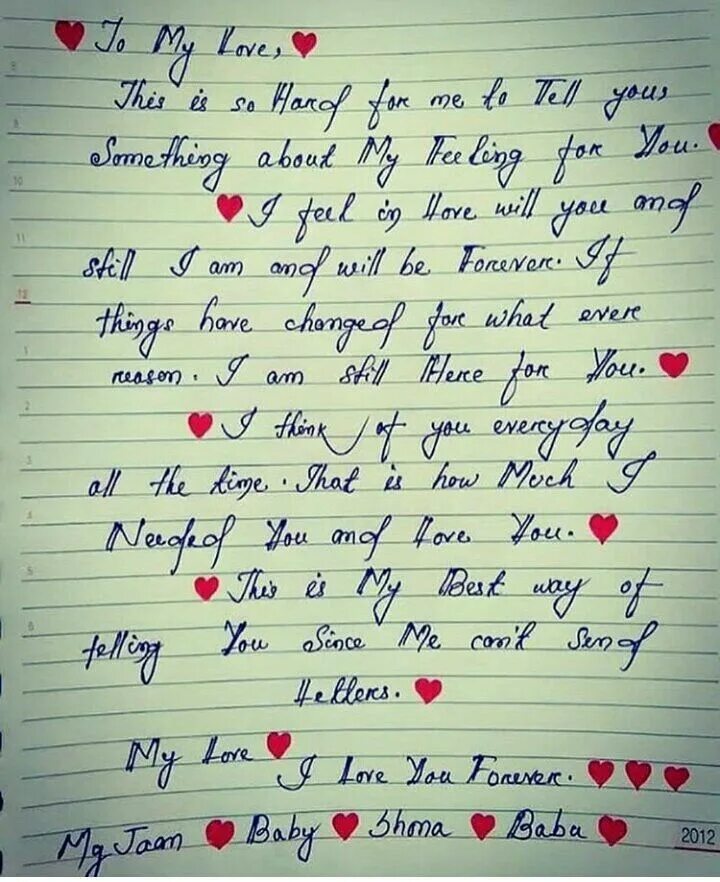 To My Love,
This is so Hard for me to Tell you,
Something about My Feeling for You.
I feel in Love will you and
still I am and will be Forever. If
things have changed for what evere
reason. I am still Here for You.
I think of you everyday
all the time. That is how Much I
Needed You and Love You.
This is My Best way of
telling You Since Me can't Send
Letters.
My Love
I Love You Forever.
My Jaan Baby Shona Babu
2012